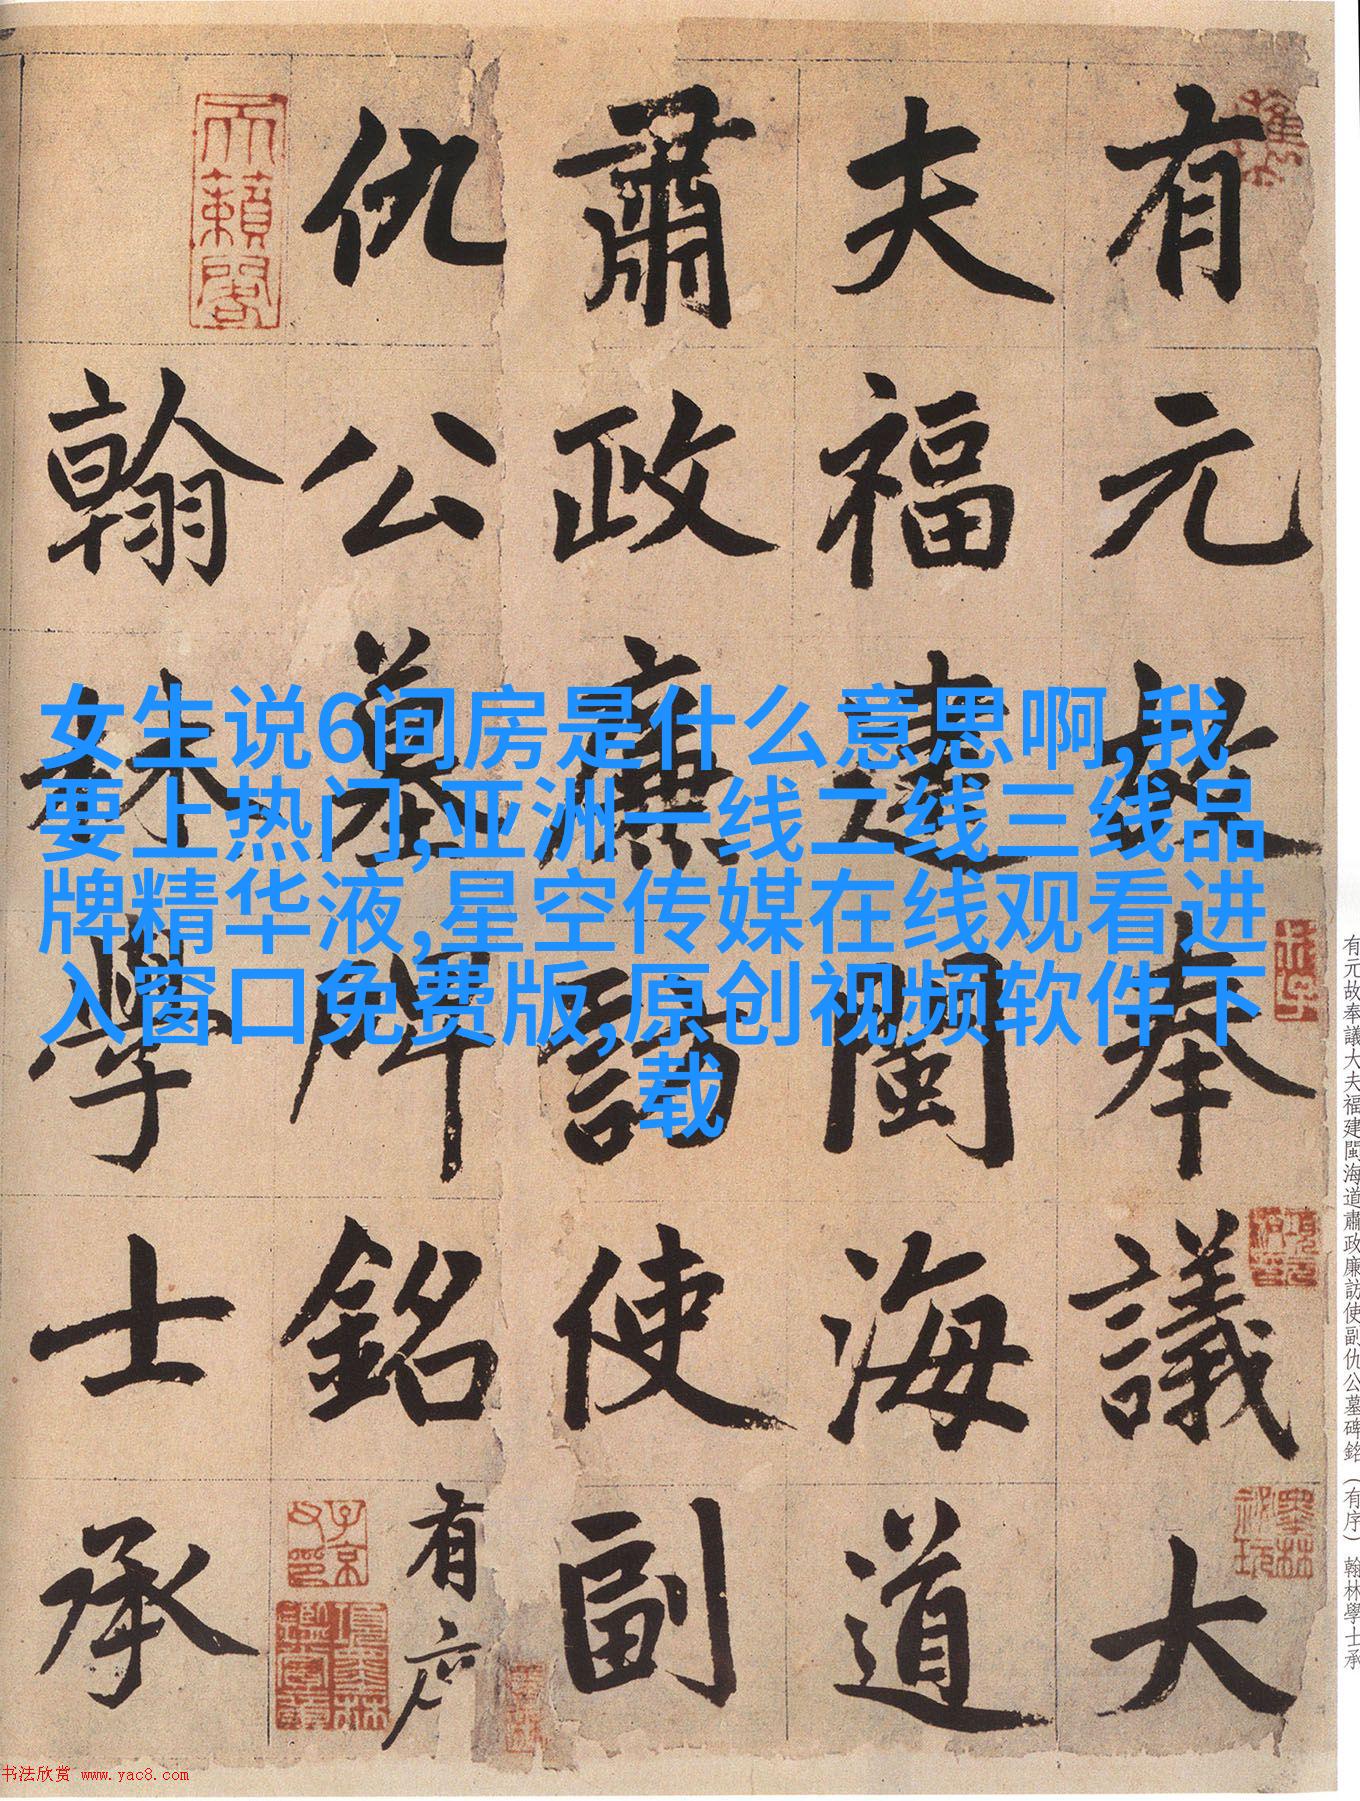 有元故奉議大
夫福建閩海道
肅政廉訪使副
仇公墓碑銘有序
翰林學士承
天籟閣
子京父印
墨林祕玩
女生说6间房是什么意思啊,我
要上热门,亚洲一线二线三线品
牌精华液,星空传媒在线观看进
入窗口免费版,原创视频软件下
载
有元故奉議大夫福建閩海道肅政廉訪使副仇公墓碑銘（有序）翰林學士承
书法欣赏 www.yac8.com